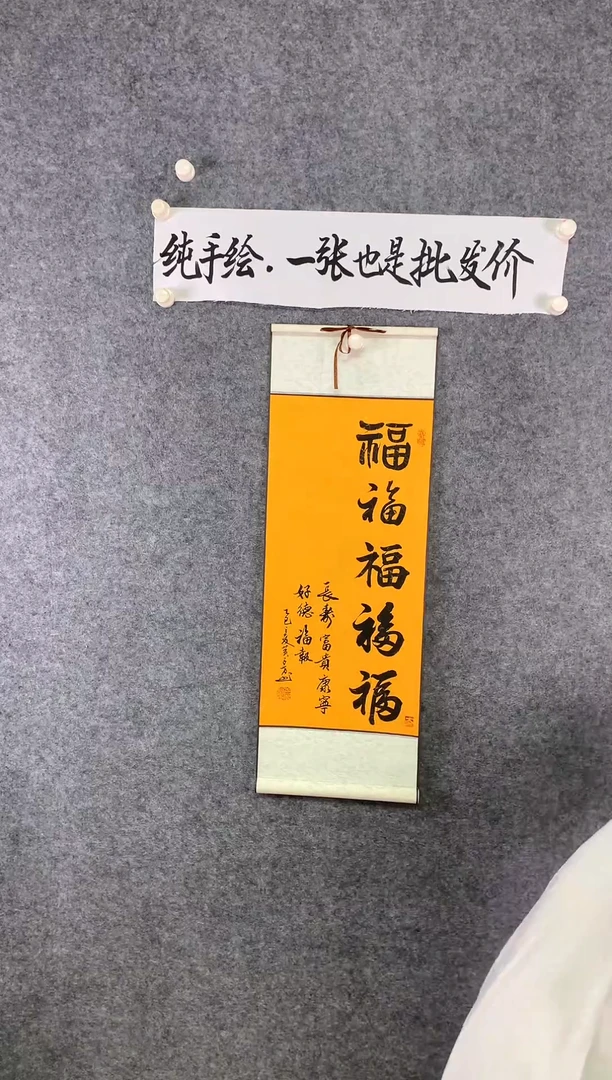 纯手绘.一张也是批发价
福福福福福
長壽富貴康寧
好德福報